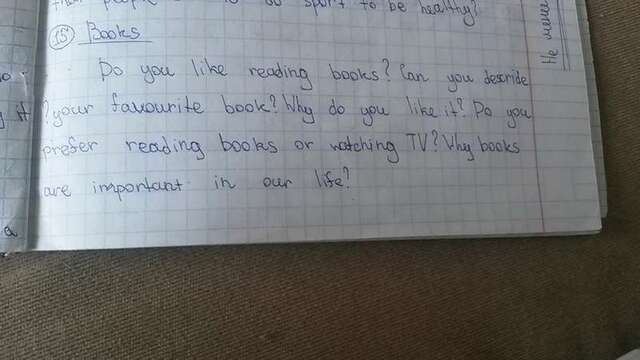 people to do sport to be healthy?
15 Books
Do you like reading books? Can you describe
your favourite book? Why do you like it? Do you
prefer reading books or watching TV? Why books
are important in our life?
Не мене